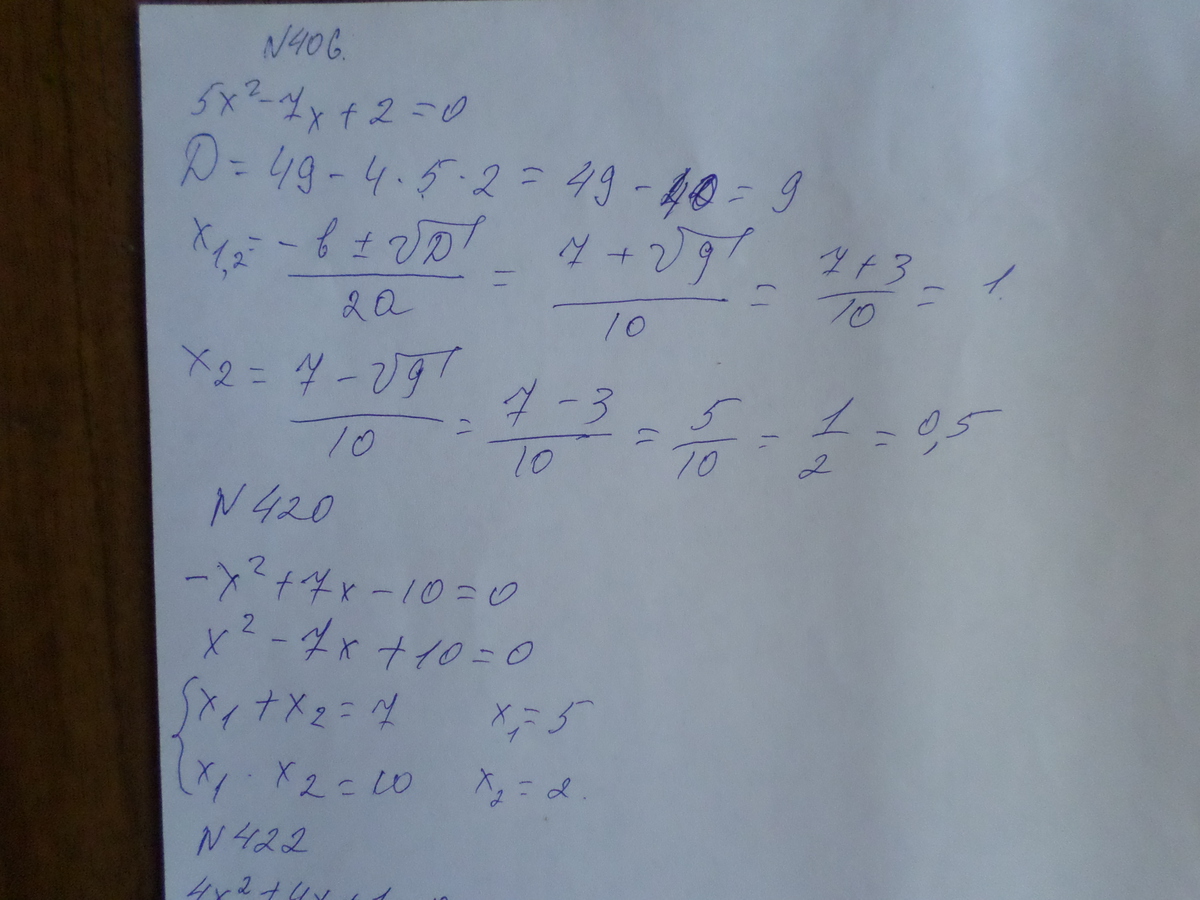 N406.
5x² - 7x + 2 = 0
D = 49 - 4 · 5 · 2 = 49 - 40 = 9
x₁,₂ = (-b ± √D)/2a = (7 + √9)/10 = (7 + 3)/10 = 1.
x₂ = (7 - √9)/10 = (7 - 3)/10 = 5/10 = 1/2 = 0,5
N 420
-x² + 7x - 10 = 0
x² - 7x + 10 = 0
{ x₁ + x₂ = 7 x₁ = 5
x₁ · x₂ = 10 x₂ = 2.
N 422
4x² + 4x + 1